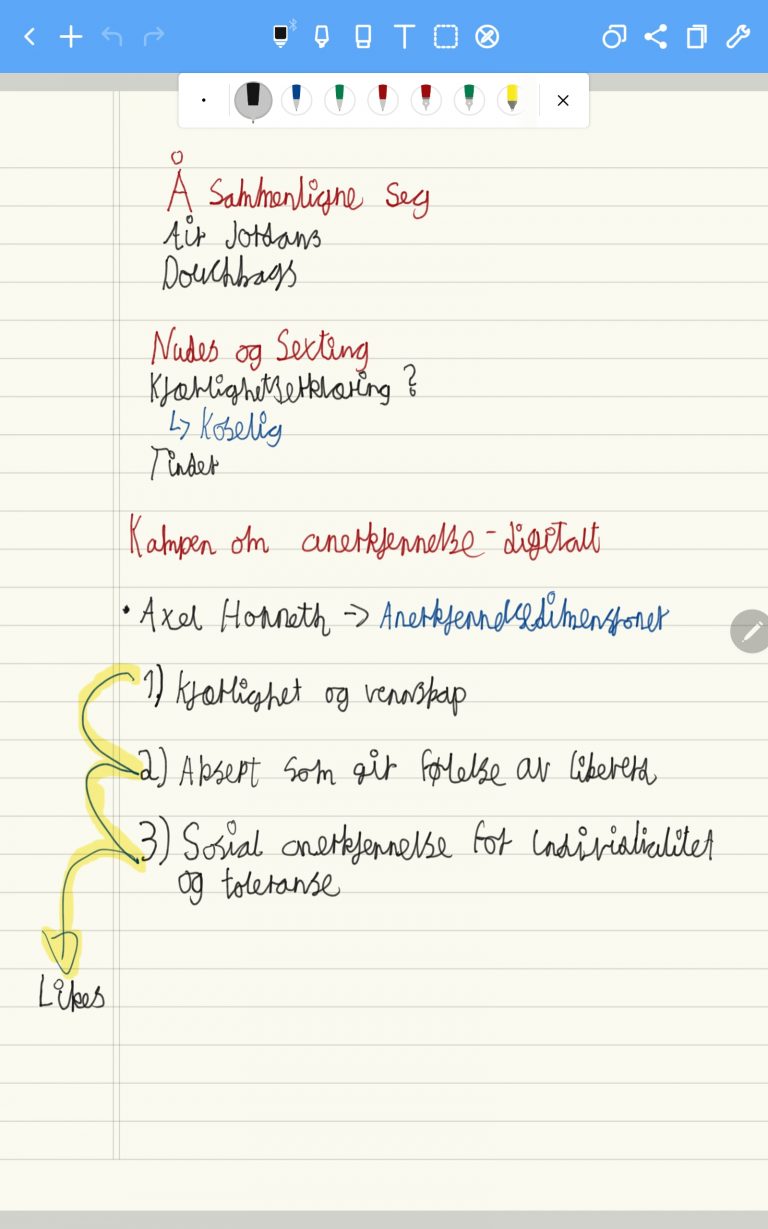 Å sammenligne seg
Air Jordans
Douchbags
Nudes og Sexting
Kjærlighetserklæring ?
↳ Koselig
Tinder
Kampen om anerkjennelse - digitalt
• Axel Honneth → Anerkjennelsesdimensjoner
1) Kjærlighet og vennskap
2) Aksept som gir følelse av likeverd
3) Sosial anerkjennelse for individialitet
og toleranse
Likes